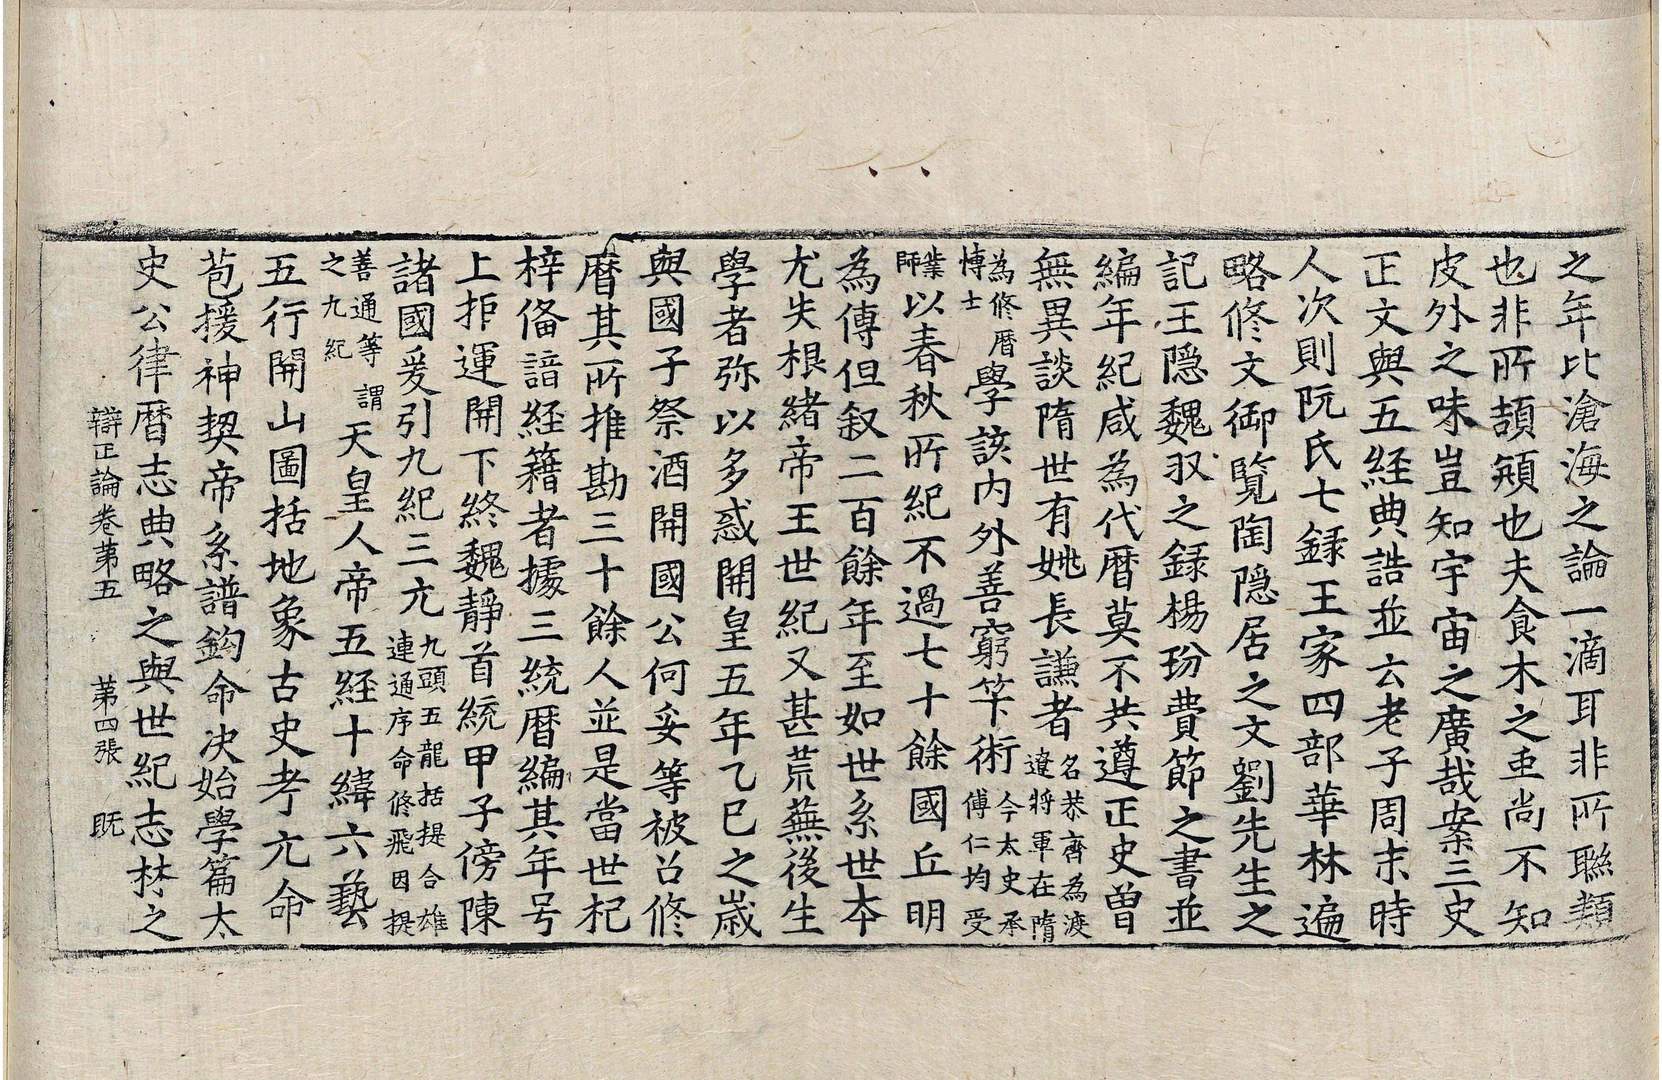 之年比滄海之論一滴耳非所聮類
也非所頡頏也夫食木之䖝尚不知
皮外之味豈知宇宙之廣哉案三史
正文與五経典誥並云老子周末時
人次則阮氏七録王家四部華林遍
略修文御覧陶隠居之文劉先生之
記王隠魏収之録楊玢費節之書並
編年紀咸為代暦莫不共遵正史曽
無異談隋世有姚長謙者名恭齊為渡遼將軍在隋
為修暦博士學該内外善窮竿術今太史承傅仁均受
業師以春秋所紀不過七十餘國丘明
為傳但叙二百餘年至如世系世本
尤失根緒帝王世紀又甚荒蕪後生
學者弥以多惑開皇五年乙巳之歳
與國子祭酒開國公何妥等被召修
暦其所推勘三十餘人並是當世杞
梓俻諳経籍者據三統暦編其年号
上拒運開下終魏靜首統甲子傍陳
諸國爰引九紀三亢九頭五龍括提合雄連通序命修飛因提
善通等謂之九紀天皇人帝五経十緯六藝
五行開山圖括地象古史考亢命
苞援神契帝系譜鈎命决始學篇太
史公律暦志典略之與世紀志林之
辯正論卷第五 第四張 旣